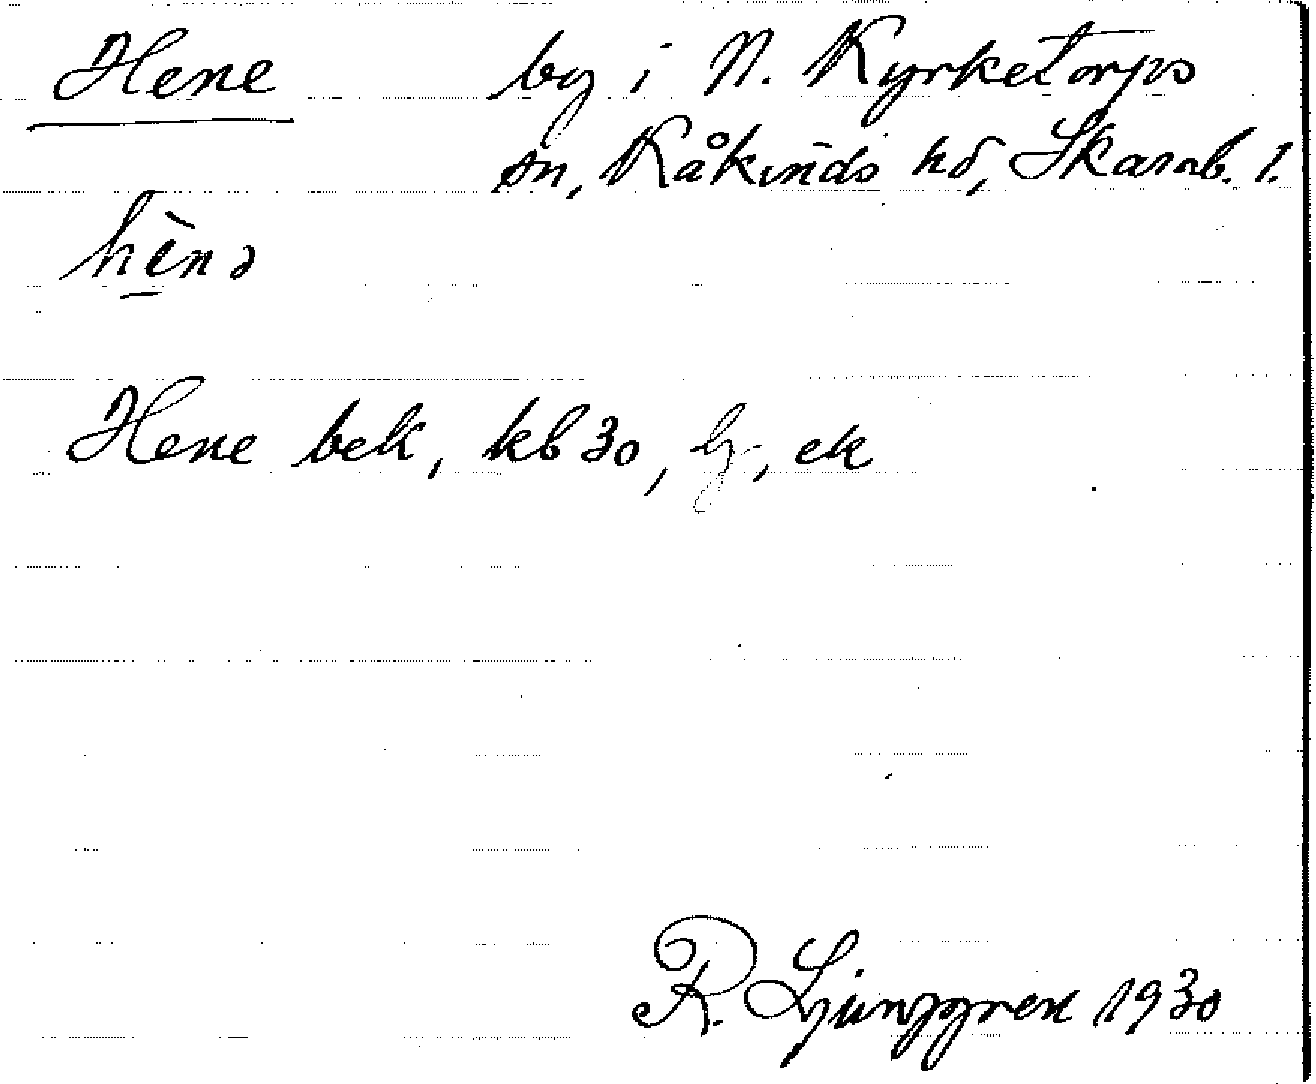 Hene by i N. Kyrketorps
sn, Kåkinds hd, Skarab. l.
hènə
Hene bek, kb 30, lj, ek
R. Ljunggren 1930